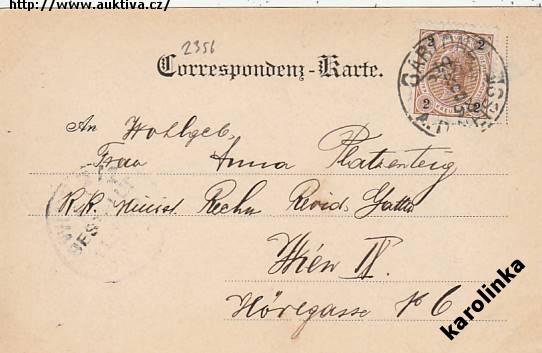 http://www.auktiva.cz/
2356
Correspondenz-Karte.
2 2
2 2
GARS
An Wohlgeb.
Frau Anna Platzenteig
K.K. Minist. Rechn Revid. Gattin
Wien IX
Hörlgasse No 6
BEST
karolinka